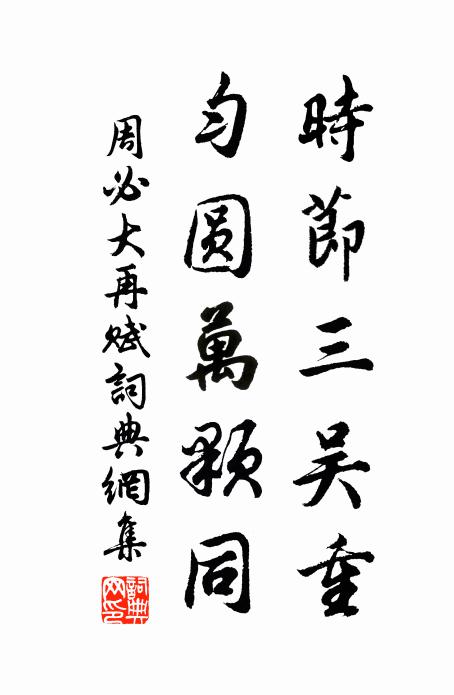 時節三吴重
匀圆萬顆同
周必大再赋詞典網集
詞典网印